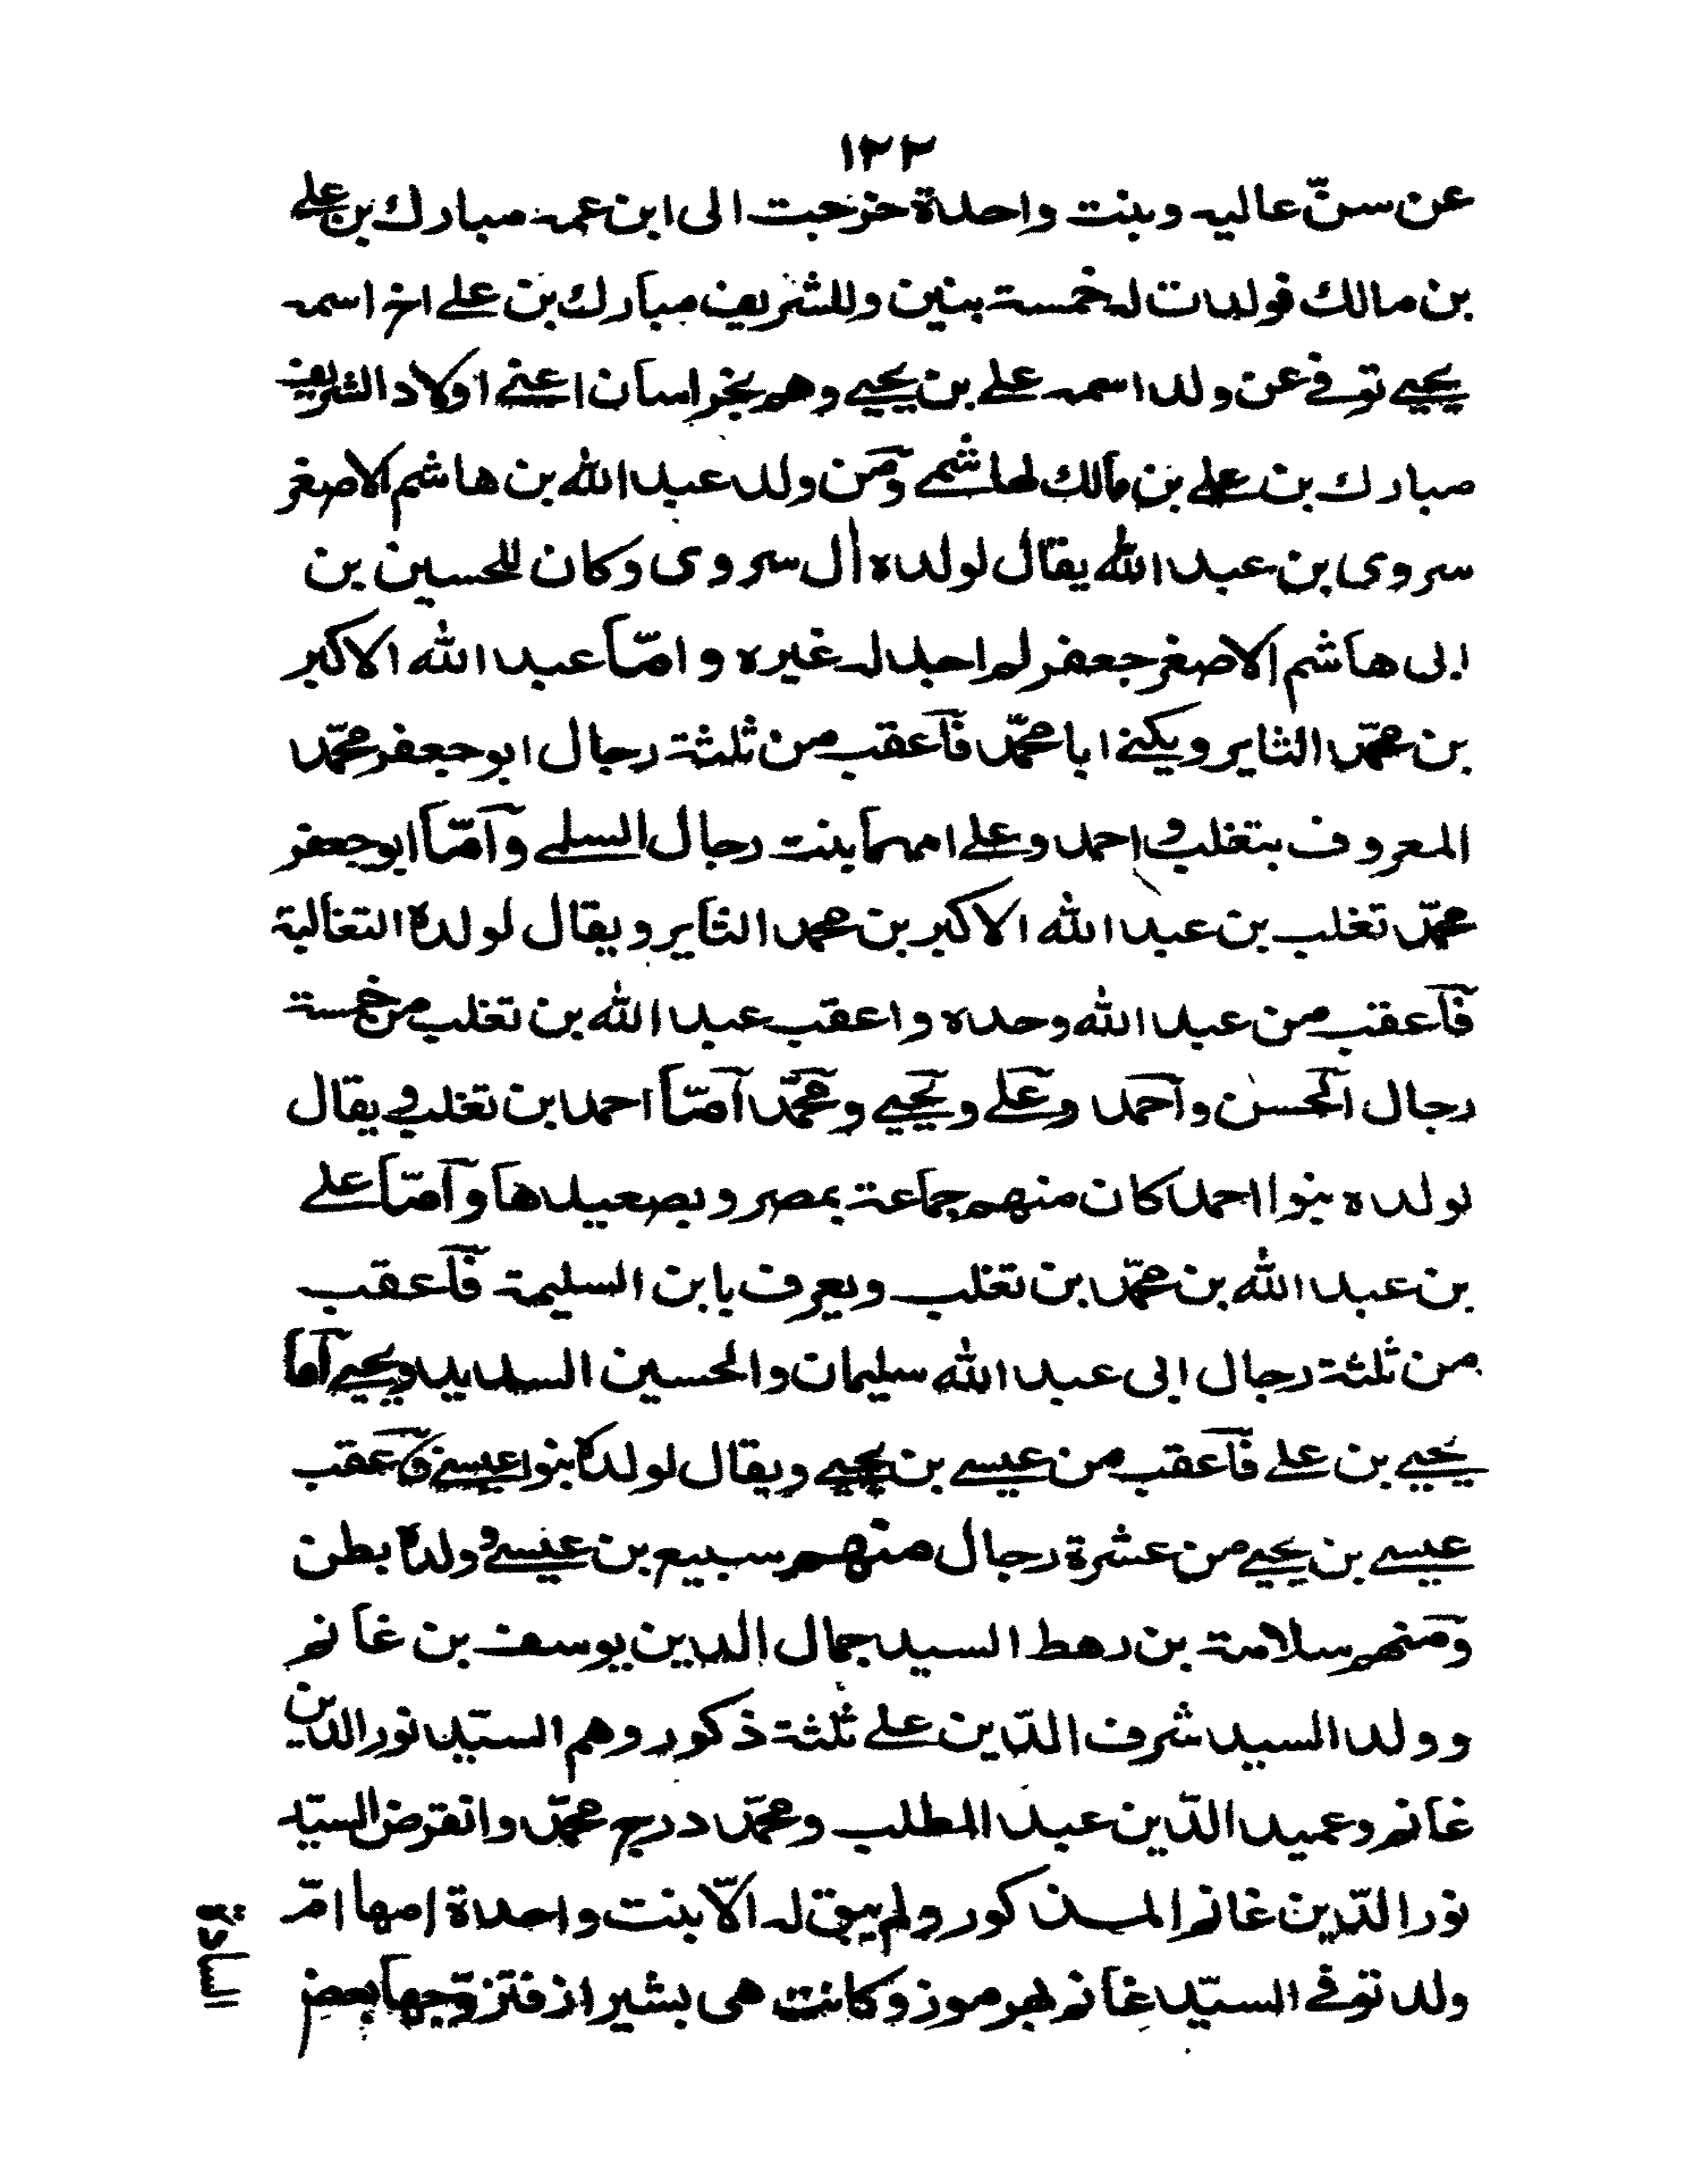 ١٢٢
عن سنّ عاليه وبنت واحدة خرجت الى ابن عمه مبارك بن علي
بن مالك فولدت له خمسة بنين وللشريف مبارك بن علے اخ اسمه
يحيے توفے عن ولد اسمه علے بن يحيے وهم بخراسان اعنے اولاد الشريف
مبارك بن علے بن مالك لهاشمے ومن ولد عبد الله بن هاشم الاصغر
سروى بن عبد الله يقال لولده ال سروى وكان للحسين بن
ابى هاشم الاصغر جعفر لم احد له غيره و امّا عبد الله الاكبر
بن محمّد الثاير ويكنے ابا محمّد فاعقب من ثلثة رجال ابو جعفر محمّد
المعروف بتغلب و احمد وعلے امهما بنت رجال السلمے وامّا ابو جعفر
محمّد تغلب بن عبد الله الاكبر بن محمد الثاير و يقال لولده التغالبة
فاعقب من عبد الله وحده و اعقب عبد الله بن تغلب من خمسة
رجال الحسن و احمد وعلے ويحيے ومحمّد امّا احمد بن تغلب فيقال
لولده بنوا احمد كان منهم جماعة بمصر وبصعيدها وامّا علے
بن عبد الله بن محمّد بن تغلب ويعرف بابن السليمة فاعقب
من ثلثة رجال ابى عبد الله سليمان والحسين السديد ويحيے اما
يحيے بن علے فاعقب من عيسے بن يحيے ويقال لولده بنوا عيسے واعقب
عيسے بن يحيے من عشرة رجال منهم سبيع بن عيسے وولده بطن
ومنهم سلامة بن رهط السيد جمال الدين يوسف بن غانم
وولد السيد شرف الدّين علے ثلثة ذكور وهم السيّد نور الدين
غانم وعميد الدّين عبد المطلب ومحمّد درج محمّد وانقرض السيّد
نور الدّين غانم المذكور ولم يبق له الّا بنت واحدة امها امّ
ولد توفے السيّد غانم بهرموز وكانت هى بشيراز فتزوّجها بعض
السادة